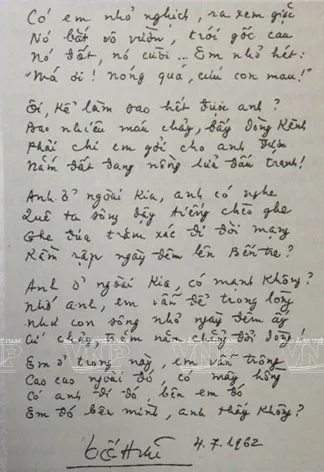 Có em nhỏ nghịch, ra xem giặc
Nó bắt vô vườn, trói gốc cau
Nó đốt, nó cười... Em nhỏ hét:
"Má ơi! nóng quá, cứu con mau!"
Ôi, kể làm sao hết được anh?
Bao nhiêu máu chảy, đầy dòng kênh
Phải chi em gởi cho anh được
Nắm đất đang nồng lửa đấu tranh!
Anh ở ngoài kia, anh có nghe
Quê ta sông dậy tiếng chèo ghe
Ghe đưa trăm xác đi đòi mạng
Rầm rập ngày đêm lên Bến Tre?
Anh ở ngoài kia, có mạnh không?
Nhớ anh, em vẫn để trong lòng
Như con sông nhỏ ngày đêm ấy
Cứ chảy, trăm năm chẳng đổi dòng!
Em ở trong này, em vẫn trông
Cao cao ngoài đó, có mây hồng
Có anh đi đó, bên em đó
Em đó bên mình, anh thấy không?
Tố Hữu 4.7.1962
VNP